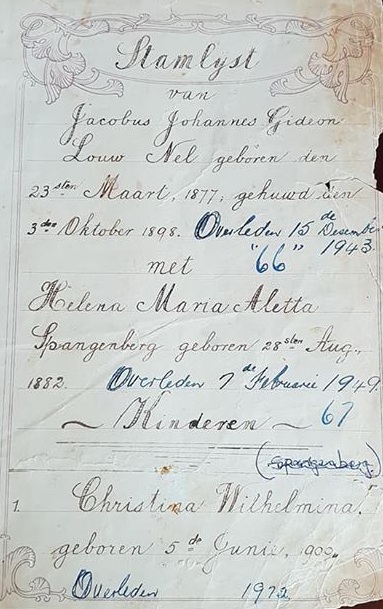 Stamlyst
van
Jacobus Johannes Gideon
Louw Nel geboren den
23sten Maart, 1877, gehuwd den
3den Oktober 1898. Overleden 15 de Desember
1943.
met "66"
Helena Maria Aletta
Spangenberg geboren 28sten Aug.,
1882. Overleden 7 de Februarie 1949.
Kinderen 67
(Spangenberg)
1. Christina Wilhelmina,
geboren 5 de Junie, 1900,
Overleden 1972